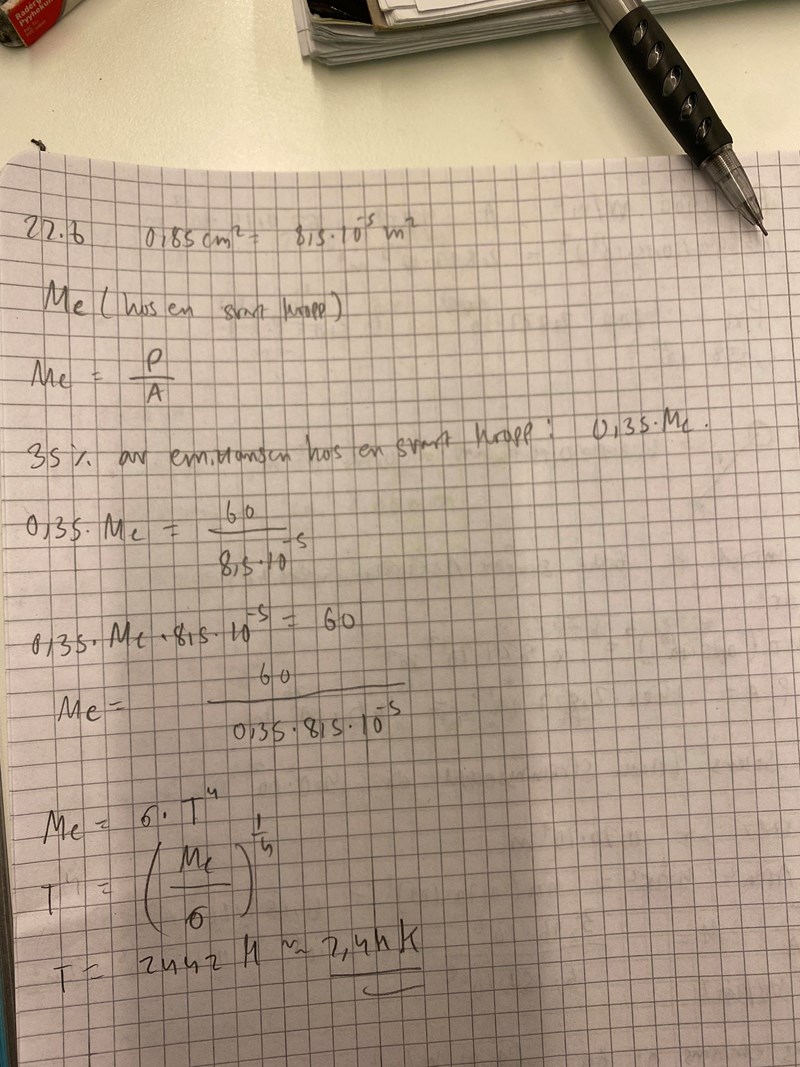 22.6 0,85 cm² = 8,5·10⁻⁵ m²
Me (hos en svart kropp)
Me = P/A
35 % av emittansen hos en svart kropp: 0,35·Me.
0,35·Me = 60/8,5·10⁻⁵
0,35·Me·8,5·10⁻⁵ = 60
Me = 60/0,35·8,5·10⁻⁵
Me = σ·T⁴
T = (Me/σ)^1/4
T = 2442 K ≈ 2,4kK